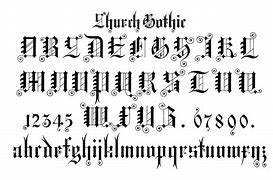 Church Gothic
ABCDEFGHIJKL
MNOPQRSTUV.
W.X.Y.Z.
12345 67890.
abcdefghijklmnopqrstuvwxyz